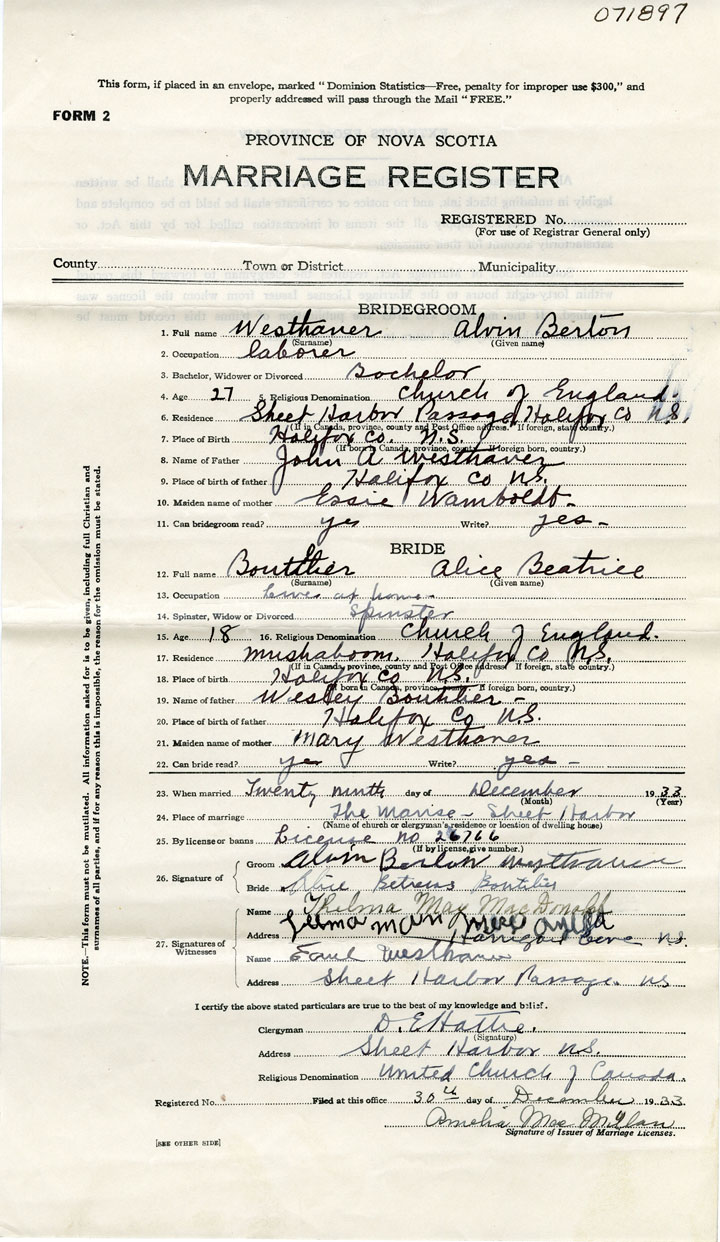 071897
This form, if placed in an envelope, marked "Dominion Statistics—Free, penalty for improper use $300," and
properly addressed will pass through the Mail "FREE."
FORM 2
PROVINCE OF NOVA SCOTIA
MARRIAGE REGISTER
REGISTERED No.
(For use of Registrar General only)
County Town or District Municipality
BRIDEGROOM
1. Full name Westhaver Alvin Berton
(Surname) (Given name)
2. Occupation laborer
3. Bachelor, Widower or Divorced Bachelor
4. Age 27 5. Religious Denomination Church of England.
6. Residence Sheet Harbor Passage Halifax Co N.S.
(If in Canada, province, county and Post Office address. If foreign, state country.)
7. Place of Birth Halifax Co. N.S.
(If born in Canada, province, county. If foreign born, country.)
8. Name of Father John A Westhaver
9. Place of birth of father Halifax Co N.S.
10. Maiden name of mother Essie Wamboldt
11. Can bridegroom read? yes Write? yes
BRIDE
12. Full name Boutilier Alice Beatrice
(Surname) (Given name)
13. Occupation Lives at home
14. Spinster, Widow or Divorced Spinster
15. Age 18 16. Religious Denomination Church of England.
17. Residence Mushaboom, Halifax Co N.S.
(If in Canada, province, county and Post Office address. If foreign, state country.)
18. Place of birth Halifax Co N.S.
(If born in Canada, province, county. If foreign born, country.)
19. Name of father Wesley Boutilier
20. Place of birth of father Halifax Co N.S.
21. Maiden name of mother Mary Westhaver
22. Can bride read? yes Write? yes
23. When married Twenty ninth day of December 1933
(Month) (Year)
24. Place of marriage The Manse - Sheet Harbor
(Name of church or clergyman's residence or location of dwelling house)
25. By license or banns License no 26766
(If by license, give number.)
26. Signature of
Groom Alvin Berton Westhaver
Bride Alice Boutilier
27. Signatures of Witnesses
Name Thelma May MacDonald
Address Harrigan Cove N.S.
Name Earl Westhaver
Address Sheet Harbor Passage. NS
I certify the above stated particulars are true to the best of my knowledge and belief.
Clergyman D. E Hattie.
(Signature)
Address Sheet Harbor N.S.
Religious Denomination United Church of Canada.
Registered No. Filed at this office 30th day of December 1933
Amelia Mac Millan
Signature of Issuer of Marriage Licenses.
[SEE OTHER SIDE]
NOTE.—This form must not be mutilated. All information asked for is to be given, including full Christian and
surnames of all parties, and if for any reason this is impossible, the reason for the omission must be stated.